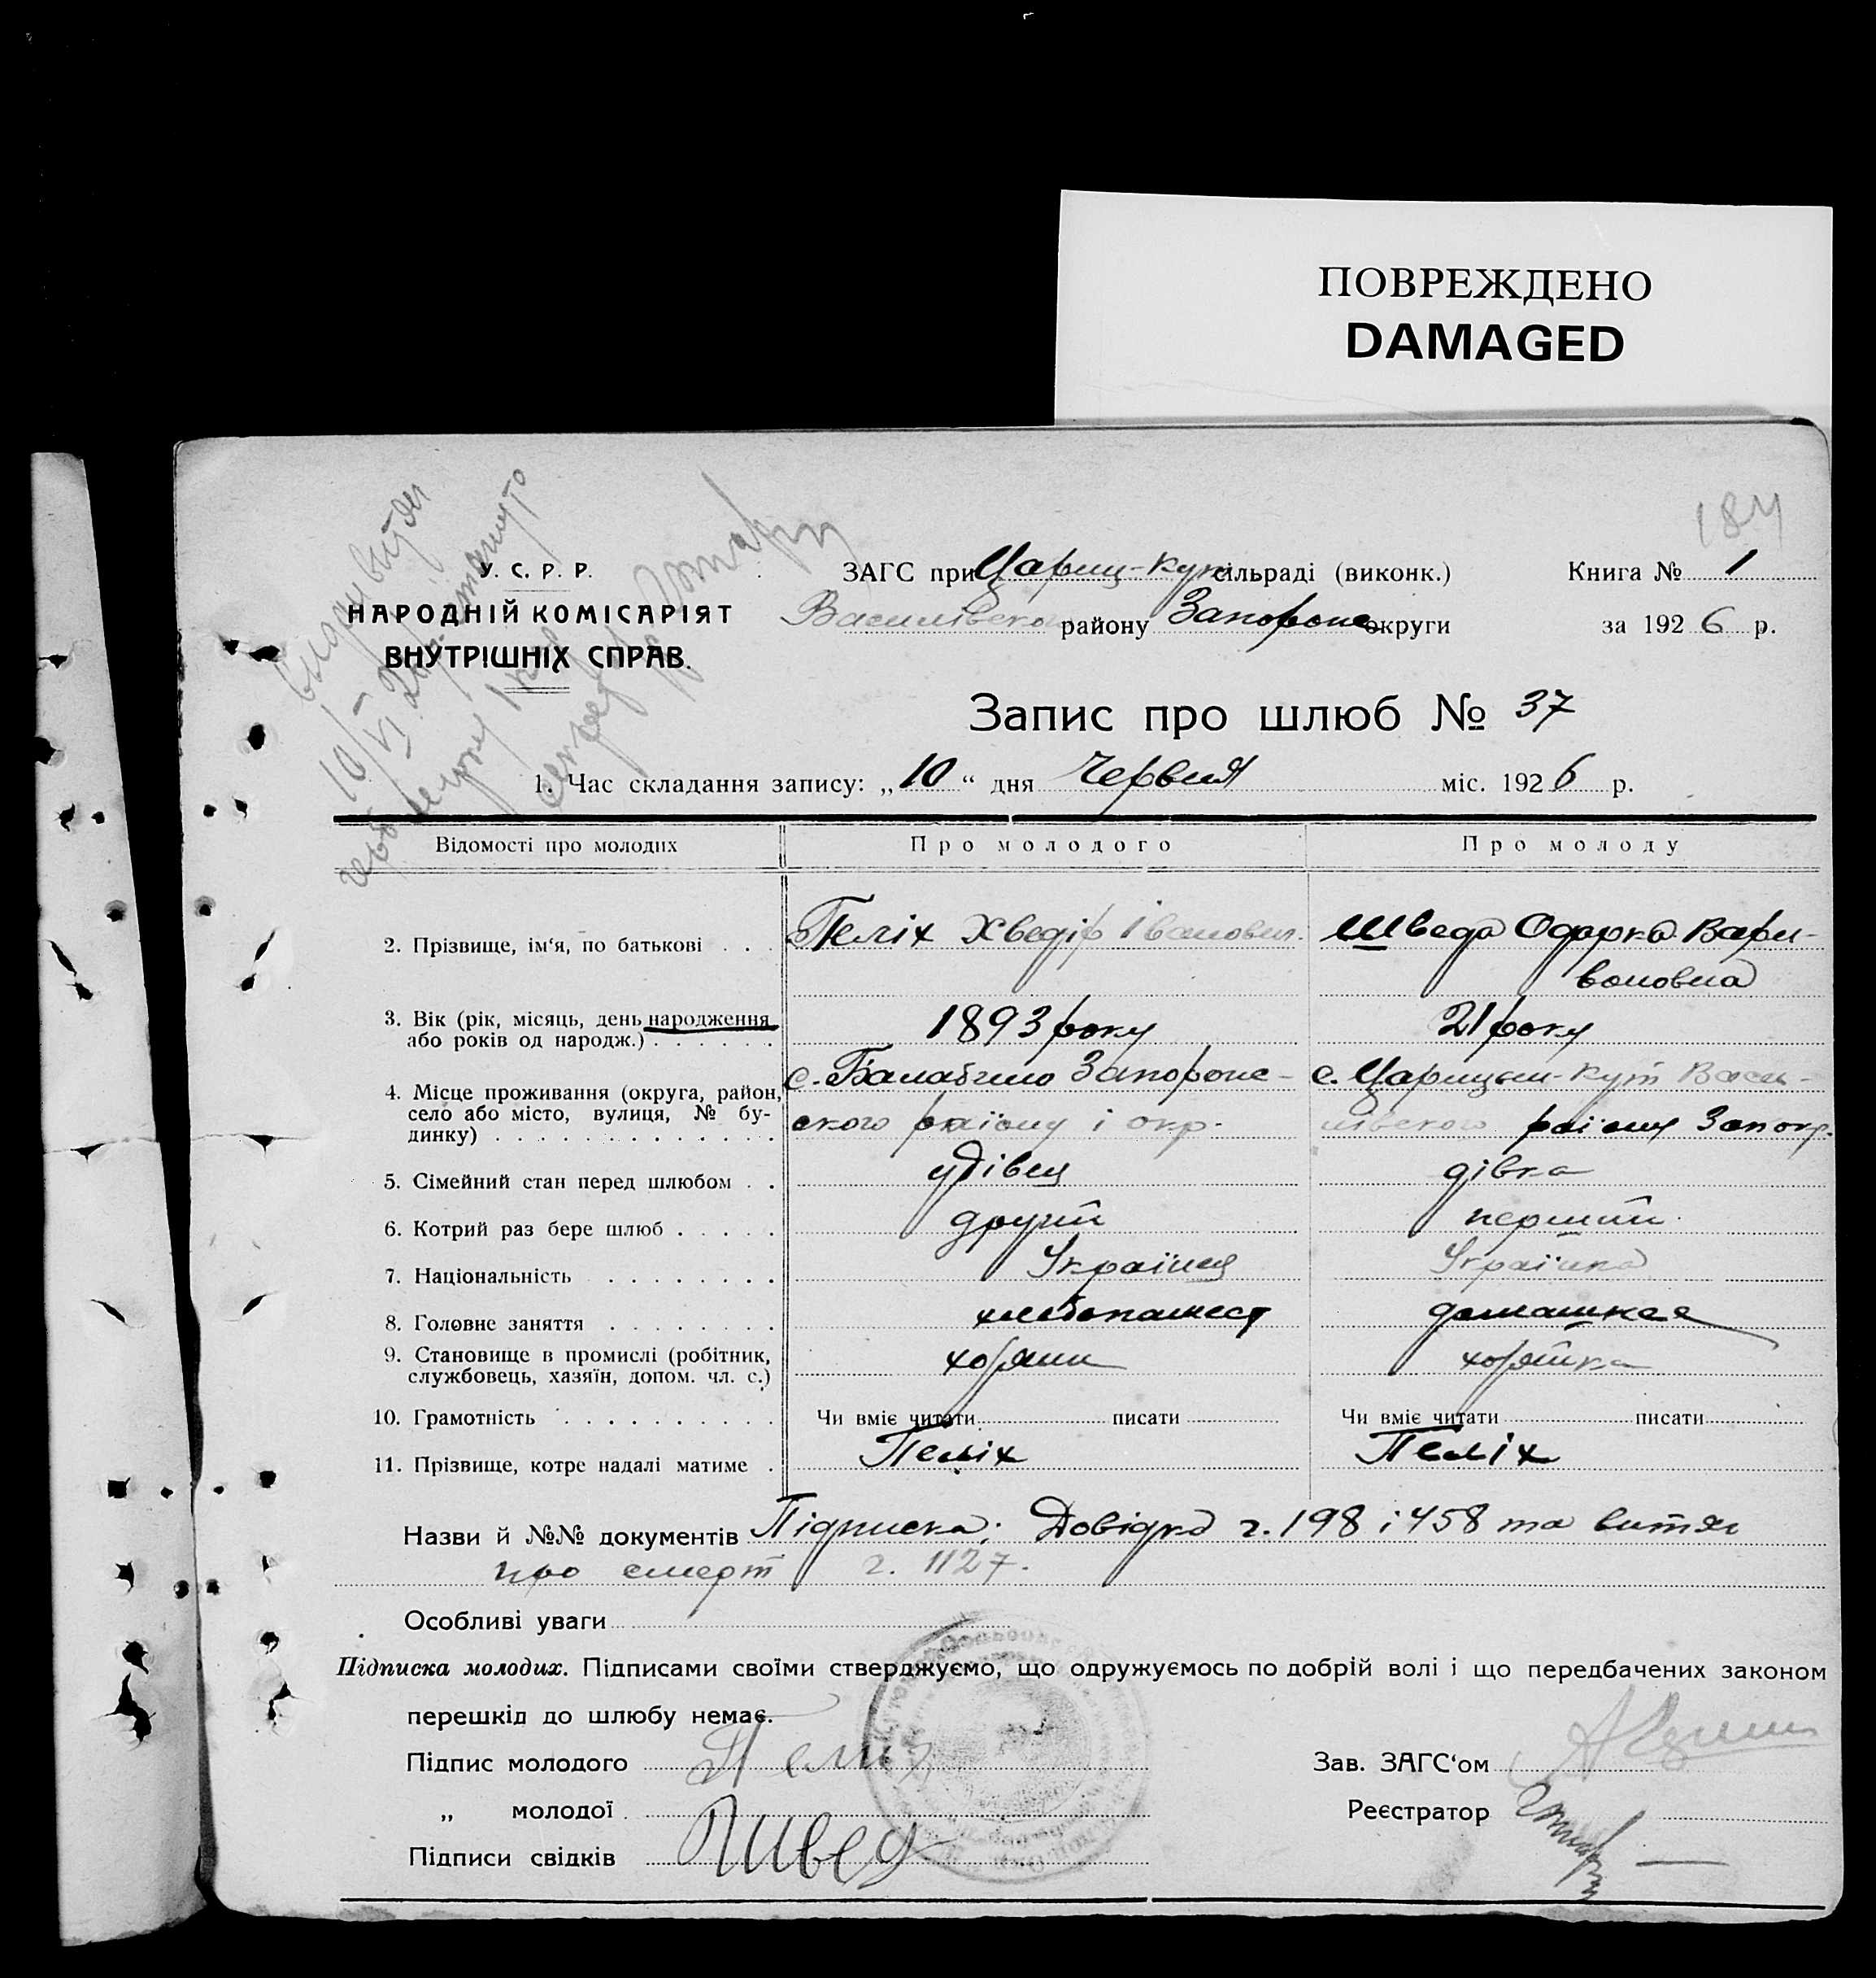 ПОВРЕЖДЕНО
DAMAGED
184
У. С. Р. Р.
НАРОДНІЙ КОМІСАРІЯТ
ВНУТРІШНІХ СПРАВ.
ЗАГС при Цариц-Кут сільраді (виконк.)
Василівсько району Запорож округи
Книга № 1
за 1926 р.
Запис про шлюб № 37
1. Час складання запису: „10“ дня Червня міс. 1926 р.
Відомості про молодих Про молодого Про молоду
2. Прізвище, ім‘я, по батькові . . . Пеліх Хведір Іванович. Шведа Одарка Вари-
воновна
3. Вік (рік, місяць, день народження 1893 року 21 року
або років од народж.) . . . . . .
4. Місце проживання (округа, район, с. Балабино Запорож- с. Царицын-Кут Васи-
село або місто, вулиця, № бу- ского раіону і окр. лівского раіону Запор.
динку) . . . . . . . . . . . . .
5. Сімейний стан перед шлюбом . . удівец дівка
6. Котрий раз бере шлюб . . . . . другий перший
7. Національність . . . . . . . . Українец Українка
8. Головне заняття . . . . . . . . хлебопашест домашнее
9. Становище в промислі (робітник,
службовець, хазяїн, допом. чл. с.)
10. Грамотність . . . . . . . . . . Чи вміє читати писати Чи вміє читати писати
11. Прізвище, котре надалі матиме . Пеліх Пеліх
Назви й №№ документів Підписка; Довідка г. 198 і 458 та витяг
про смерт г. 1127.
Особливі уваги
Підписка молодих. Підписами своїми стверджуємо, що одружуємось по добрій волі і що передбачених законом
перешкід до шлюбу немає.
Підпис молодого Пелих
Зав. ЗАГС‘ом
„ молодої
Реєстратор
Підписи свідків Швед